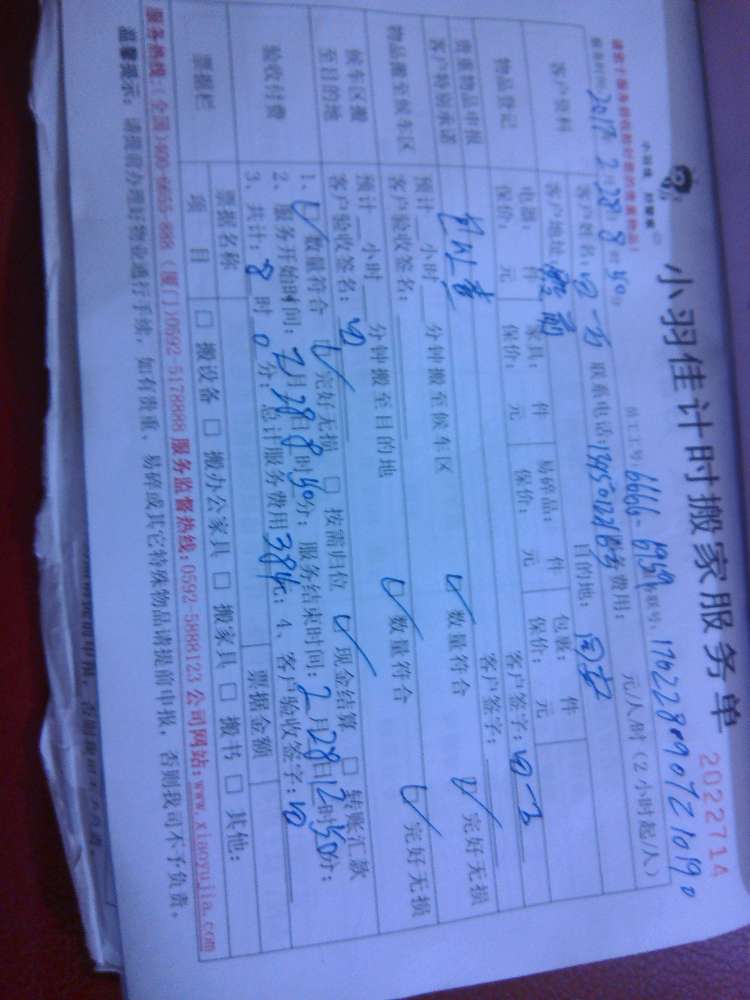 小羽佳计时搬家服务单
2022714
小羽佳 好管家
员工工号: 6666-6959
请您于服务前收拾好您的贵重物品!
服务时间: 2017年2月28日8时50分
客户资料
客户姓名: 联系电话: 服务费用: 元/人/时(2小时起/人)
客户地址: 目的地: 同安
物品登记
电器: 件 家具: 件 易碎品: 件 包裹: 件
保价: 元 保价: 元 保价: 元 保价: 元
客户签字:
贵重物品申报
客户特别承诺
客户签字:
物品搬至候车区
预计 小时 分钟搬至候车区 ☑数量符合 ☑完好无损
客户验收签名:
候车区搬
至目的地
预计 小时 分钟搬至目的地 ☑数量符合 ☑完好无损
客户验收签名:
验收付费
1、☑数量符合 ☑完好无损 □按需归位 ☑现金结算 □转账汇款
2、服务开始时间: 2月28日8时50分; 服务结束时间: 2月28日12时50分;
3、共计: 8时0分; 总计服务费用384元; 4、客户验收签字:
票据栏
票据名称 票据金额
项目 □搬设备 □搬办公家具 □搬家具 □搬书 □其他:
服务热线:(全国)400-6655-888 (厦门)0592-5178888 服务监督热线:0592-5888123 公司网站:www.xiaoyujia.com
温馨提示: 请提前办理好物业通行手续, 如有贵重、易碎或其它特殊物品请提前申报, 否则我司不予负责。